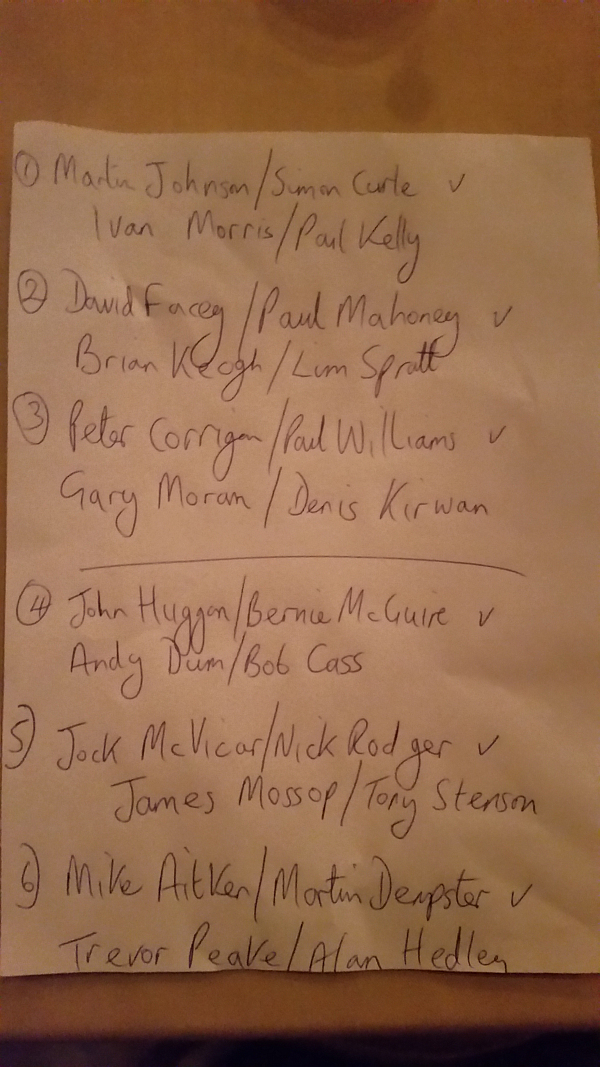 ① Martin Johnson/Simon Curle v
Ivan Morris/Paul Kelly
② David Facey/Paul Mahoney v
Brian Keogh/Liam Spratt
③ Peter Corrigan/Paul Williams v
Gary Moran/Denis Kirwan
④ John Huggan/Bernie McGuire v
Andy Dunn/Bob Cass
5) Jock McVicar/Nick Rodger v
James Mossop/Tony Stenson
6) Mike Aitken/Martin Dempster v
Trevor Peake/Alan Hedley